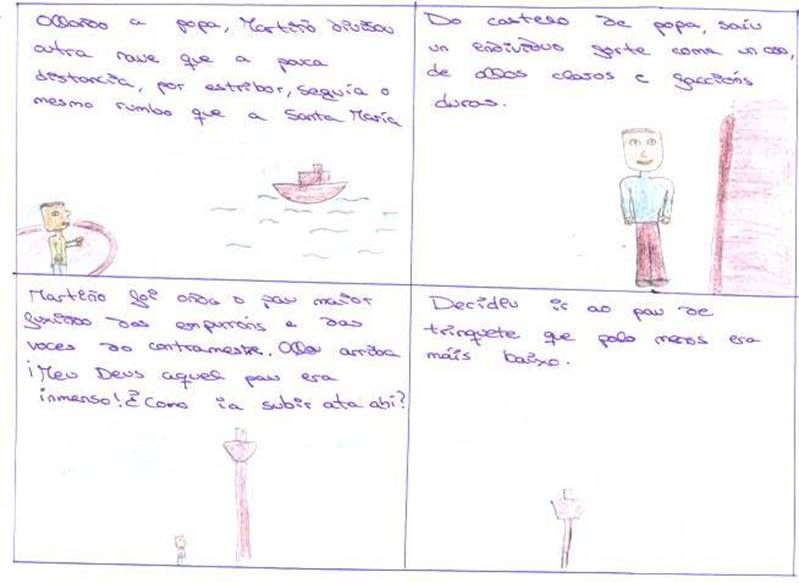 Ollando a popa, Martiño divisou
outra nave que a pouca
distancia, por estribor, seguía o
mesmo rumbo que a Santa María
Do castelo de popa, saíu
un individuo forte coma un oso,
de ollos claros e faccións
duras.
Martiño foi onda o pau maior
fuxindo dos empurróns e das
voces do contramestre. Ollou arriba
¡Meu Deus aquel pau era
inmenso! ¿Como ía subir ata ahí?
Decideu ir ao pau de
trinquete que polo menos era
máis baixo.